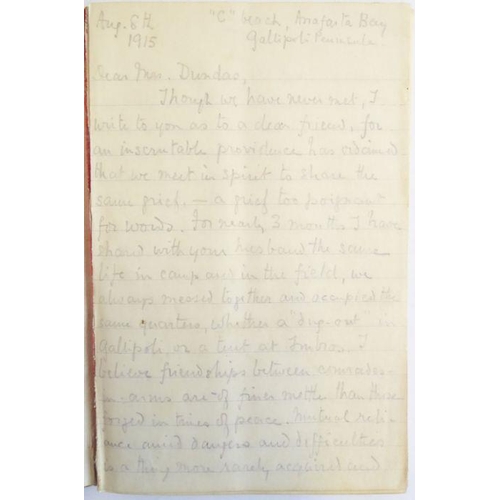 Aug. 8th "C" beach, Anafarta Bay
1915 Gallipoli Peninsula
Dear Mrs. Dundas,
Though we have never met, I
write to you as to a dear friend, for
an inscrutable providence has ordained
that we meet in spirit to share the
same grief, — a grief too poignant
for words. For nearly 3 months I have
shared with your husband the same
life in camp and in the field, we
always messed together and occupied the
same quarters, whether a "dug-out" in
Gallipoli or a tent at Imbros. I
believe friendships between comrades-
in-arms are of finer mettle than those
forged in times of peace. Mutual reli-
ance amid dangers and difficulties
is a thing more rarely acquired and